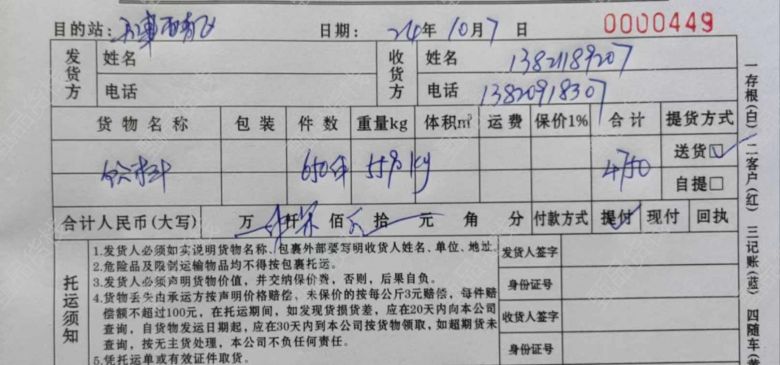 目的站： 日期：24年10月7日 0000449
发货方 姓名 收货方 姓名 13821189207
电话 电话 13820918307
货物名称 包装 件数 重量kg 体积m³ 运费 保价1% 合计 提货方式
650件 4750 送货☑
自提□
合计人民币(大写) 万 仟 佰 拾 元 角 分 付款方式 提付 现付 回执
托运须知
1.发货人必须如实说明货物名称、包裹外部要写明收货人姓名、单位、地址。
2.危险品及限制运输物品均不得按包裹托运。
3.发货人必须声明货物价值，并交纳保价费，否则，后果自负。
4.货物丢失由承运方按声明价格赔偿，未保价的按每公斤3元赔偿，每件赔
偿额不超过100元，在托运期间，如发现货损货差，应在20天内向本公司
查询，自货物发运日期起，应在30天内到本公司按货物领取，如超期货未
查询，按无主货处理，本公司不负任何责任。
5.凭托运单或有效证件取货。
发货人签字
身份证号
收货人签字
身份证号
一存根(白) 二客户(红) 三记账(蓝) 四随车